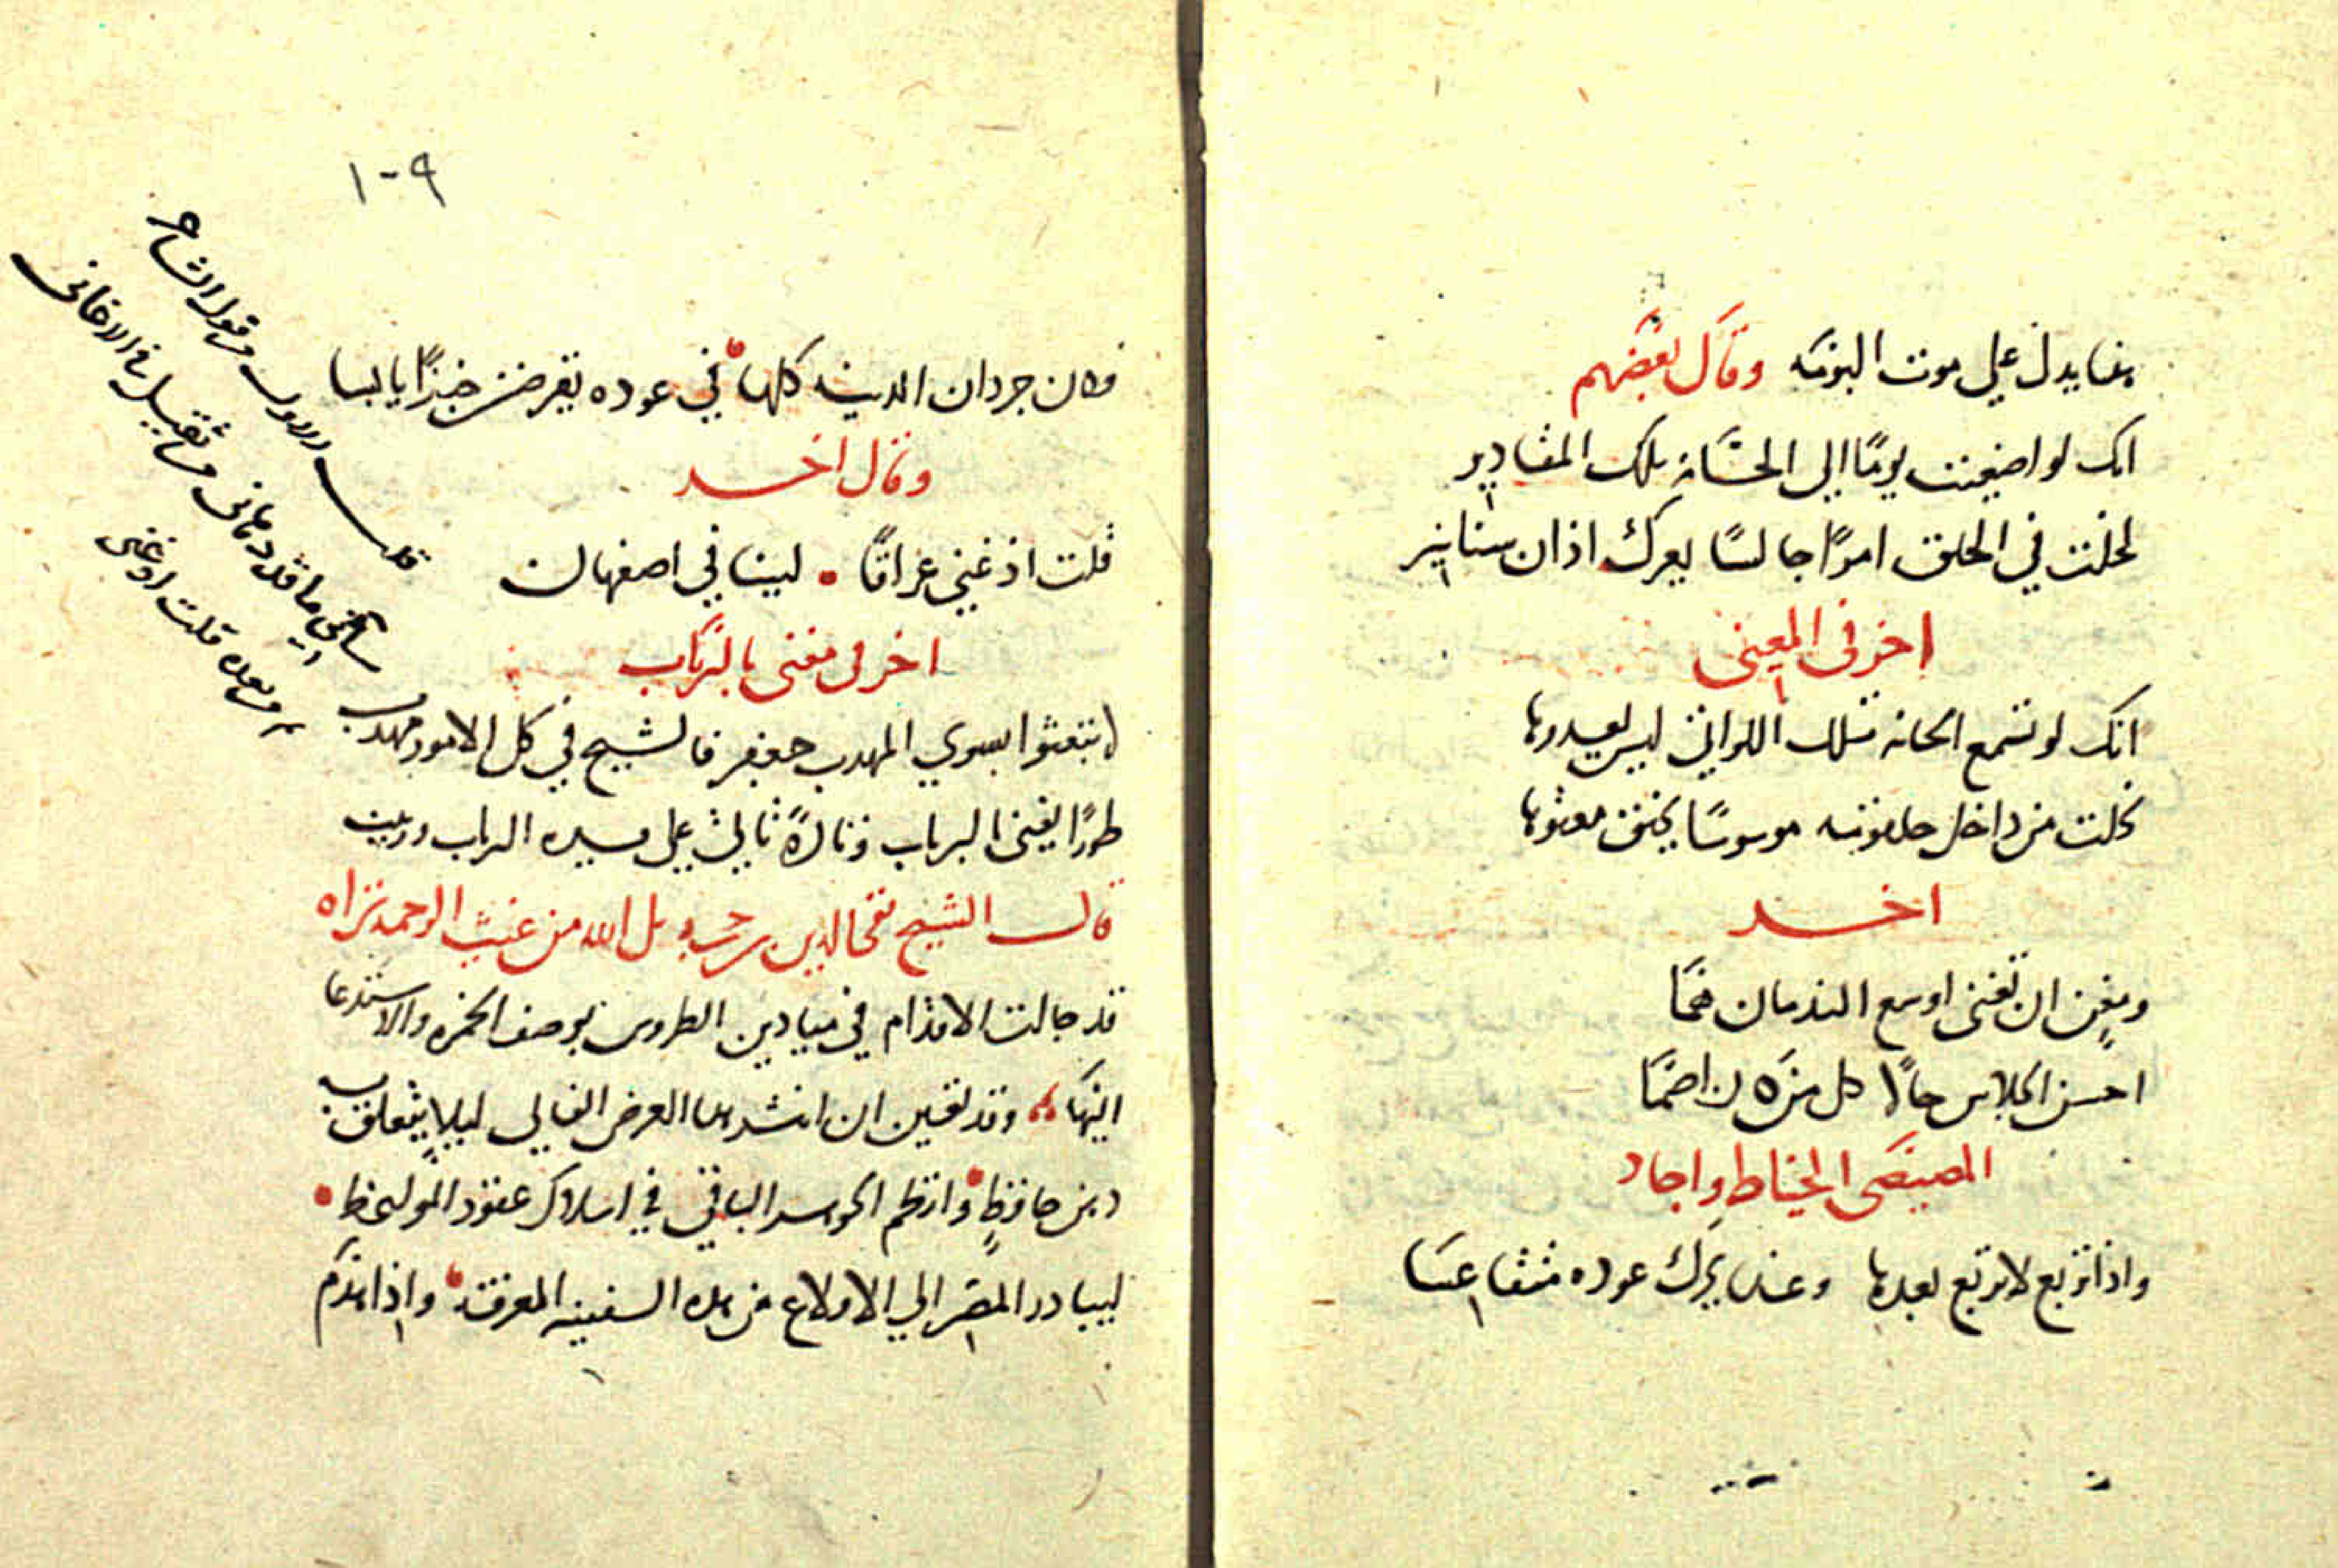 بغنا يدل علي موت البومه وقال بعضهم
انك لو اصغيت يومًا الي الحانه تلك المقادير
لخلت في الحلق امرًا جالسًا يعرك اذان سنانير
اخر في المعنى
انك لو تسمع الحانه تلك اللواتي ليس يعدوها
لخلت من داخل حلقومه موسوسًا يخنق معتوها
اخر
ومغن ان تغنى اوسع الندمان غما
احسن الجلاس حالًا كل من كان اصما
الخياط واجاد
واذا تربع لا تربع بعدها وغدا يحرك عوده متقاعسا
١٠٩
فكان جردان المدينه كلها في عوده يقرضن خبزًا يابسا
وقال اخر
قلت اذ غني عراقًا ليتنا في اصفهان
اخر في مغنى بالرباب
لا تبعثوا بسوي المهدب جعفر فالشيخ في كل الامور مهدب
طورًا يغنى بالرباب وتارةً تاتي على يده الرباب وزينب
قال الشيخ تقي الدين بن حجه بل الله من غيث الرحمه ثراه
قد جالت الاقدام في ميادين الطروس بوصف الخمره والاستدعا
اليها وقد تعين ان انشد هدا العرض الغالي ليلا يتعلق به
دهن حافظ وانظم الجوهر الباقي في اسلاك عقود الموالى
ليبادر المقصر الي الاقلاع من هده السفينه المغرقه واذا
قلت من قول الشاعر
سالتني ما قد دهاني من ثقيل في الاغاني
من بعده قلت اذ غنى